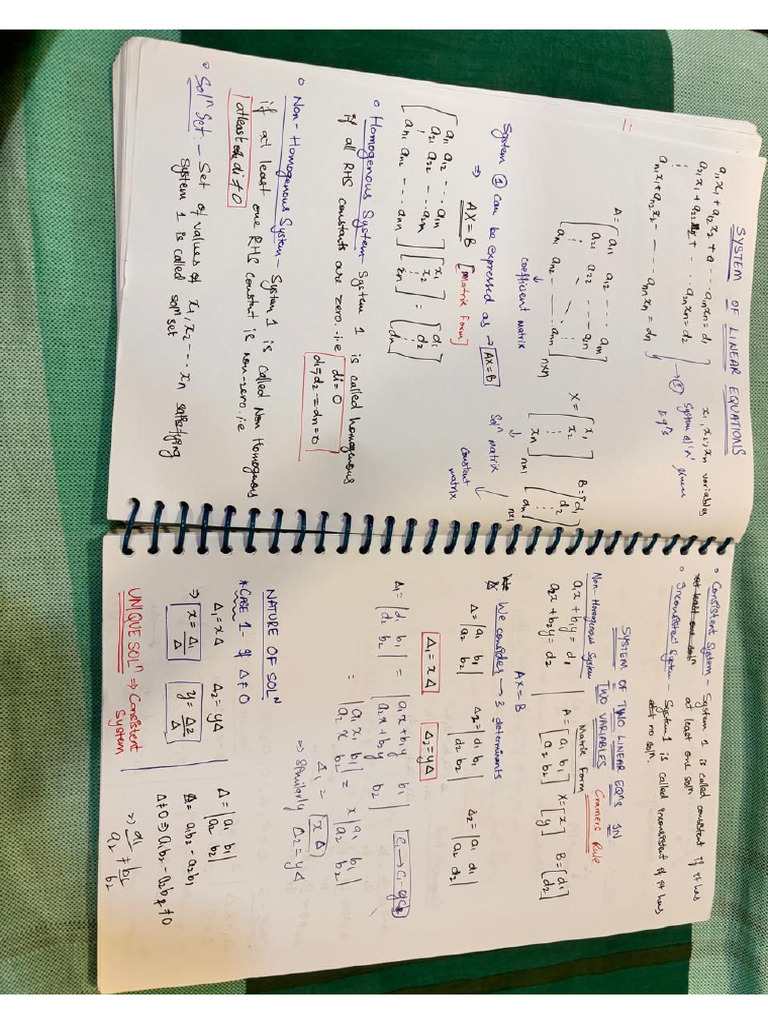 SYSTEM OF LINEAR EQUATIONS
a₁₁x₁ + a₁₂x₂ + a - - - a₁ₙxₙ = d₁
a₂₁x₁ + a₂₂x₂ + - - - a₂ₙxₙ = d₂
⋮
aₙ₁x₁ + aₙ₂x₂ - - - - aₙₙxₙ = dₙ
→ ①
x₁, x₂, xₙ variables
System of 'n' linear
Eqⁿs
A = [a₁₁ a₁₂ - - - a₁ₙ
a₂₁ a₂₂ - - - a₂ₙ
⋮
aₙ₁ aₙ₂ - - - aₙₙ] n×n
↓
coefficient matrix
X = [x₁
x₂
⋮
xₙ] n×1
↓
Solⁿ matrix
B = [d₁
d₂
⋮
dₙ] n×1
↙
constant
matrix
System ① can be expressed as → AX=B
⇒ AX = B [Matrix form]
[a₁₁ a₁₂ - - - a₁ₙ
a₂₁ a₂₂ - - - a₂ₙ
⋮
aₙ₁ aₙ₂ - - - aₙₙ] [x₁
x₂
⋮
xₙ] = [d₁
d₂
⋮
dₙ]
° Homogenous System - System 1 is called homogenous
if all RHS constants are zero. i.e
di = 0
d₁ = d₂ - = dₙ = 0
° Non-Homogenous System - System 1 is called Non Homogenous
if at least one RHS constant is non-zero. i.e
atleast di ≠ 0
° Solⁿ Set - Set of values of x₁, x₂ - - - xₙ satisfying
system 1 is called solⁿ set
° Consistent System - System 1 is called consistent if it has
at least one solⁿ
at least one solⁿ
° Inconsistent System - System 1 is called inconsistent if it has
no solⁿ.
SYSTEM OF TWO LINEAR EQⁿs IN
TWO VARIABLES
Cramers Rule
Non-Homogenous System
Matrix Form
a₁x + b₁y = d₁
a₂x + b₂y = d₂
A = [a₁ b₁
a₂ b₂] X = [x
y] B = [d₁
d₂]
AX = B
We consider → 3 determinants
Δ = |a₁ b₁
a₂ b₂| Δ₁ = |d₁ b₁
d₂ b₂| Δ₂ = |a₁ d₁
a₂ d₂|
Δ₁ = xΔ Δ₂ = yΔ
Δ₁ = |d₁ b₁
d₂ b₂| = |a₁x + b₁y b₁
a₂x + b₂y b₂|
C₁ → C₁ - yC₂
= |a₁x b₁
a₂x b₂| = x|a₁ b₁
a₂ b₂|
Δ₁ = xΔ
⇒ Similarly Δ₂ = yΔ
NATURE OF SOLⁿ
* CASE 1 - if Δ ≠ 0
Δ₁ = xΔ Δ₂ = yΔ
⇒ x = Δ₁/Δ y = Δ₂/Δ
UNIQUE SOLⁿ ⇒ Consistent
System
Δ = |a₁ b₁
a₂ b₂|
Δ = a₁b₂ - a₂b₁
Δ ≠ 0 ⇒ a₁b₂ - a₂b₁ ≠ 0
⇒ a₁/a₂ ≠ b₁/b₂